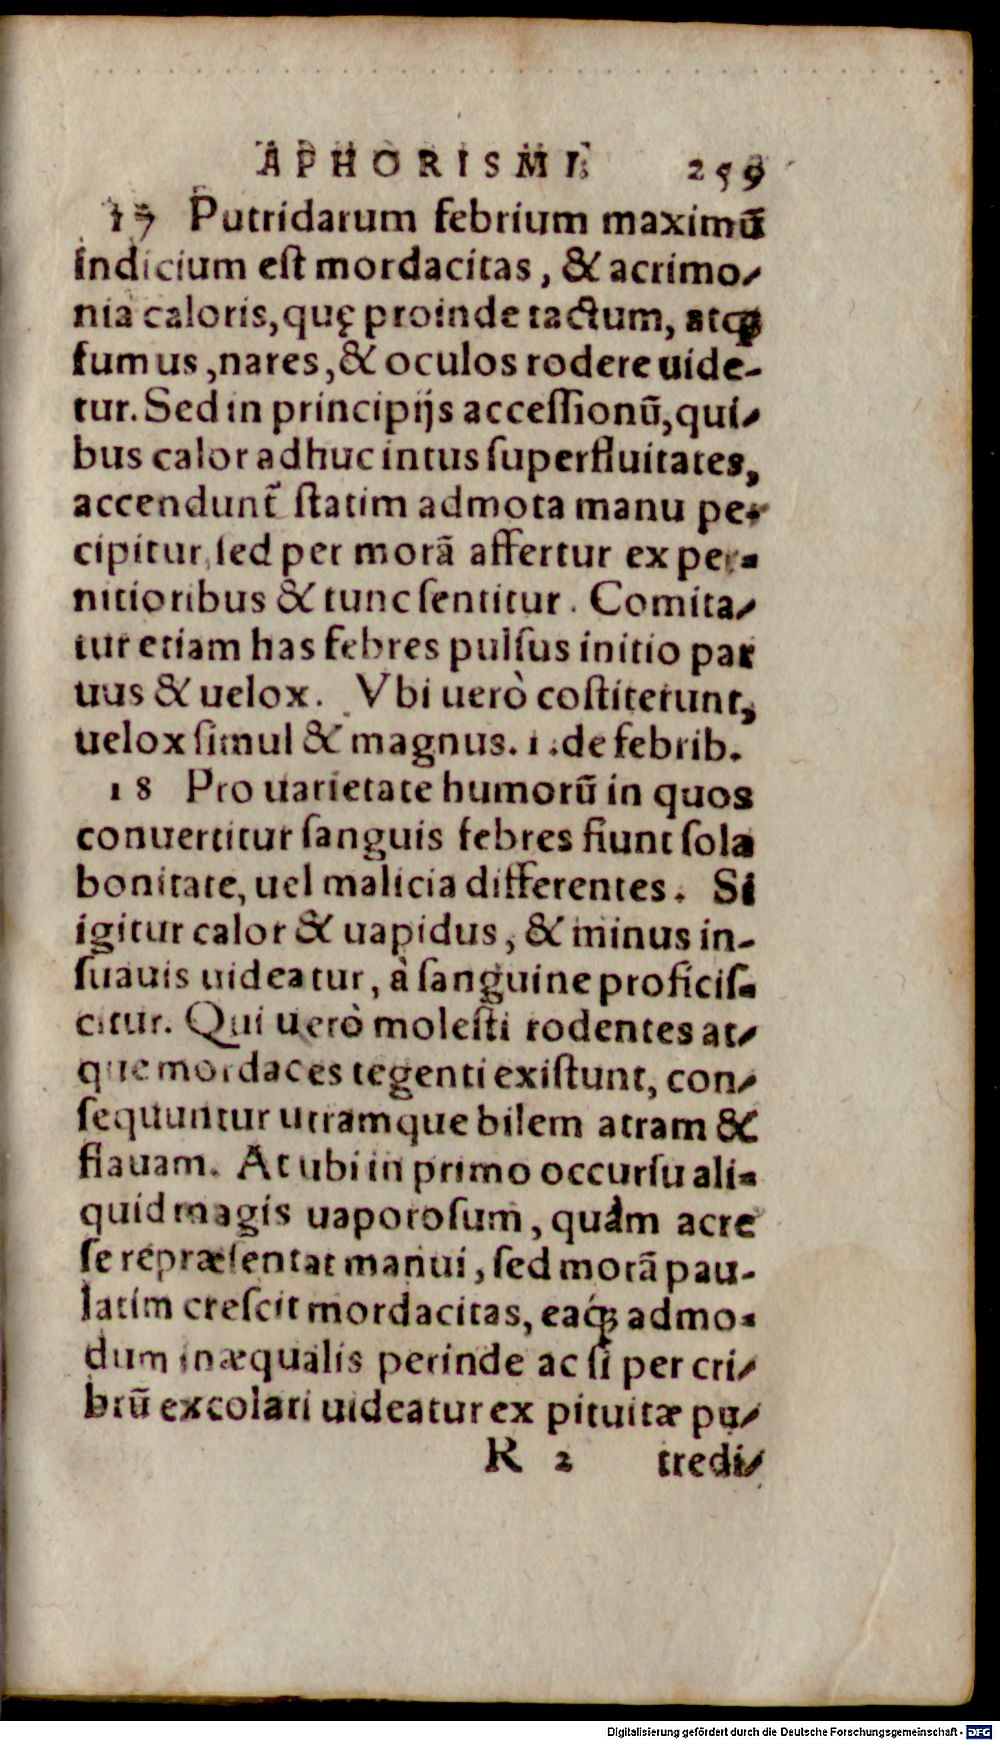 APHORISMI. 259
17 Putridarum febrium maximū
indicium est mordacitas, & acrimo-
nia caloris, quę proinde tactum, atq́;
fumus, nares, & oculos rodere uide-
tur. Sed in principijs accessionū, qui-
bus calor adhuc intus superfluitates,
accendunt̃ statim admota manu per
cipitur, sed per morā affertur ex pe-
nitioribus & tunc sentitur. Comita-
tur etiam has febres pulsus initio par
uus & uelox. Vbi uerò costiterunt,
uelox simul & magnus. 1. de febrib.
18 Pro uarietate humorū in quos
conuertitur sanguis febres fiunt sola
bonitate, uel malicia differentes. Si
igitur calor & uapidus, & minus in-
suauis uideatur, à sanguine proficis-
citur. Qui uerò molesti rodentes at-
que mordaces tegenti existunt, con-
sequuntur utramque bilem atram &
flauam. At ubi in primo occursu ali-
quid magis uaporosum, quàm acre
se repræsentat manui, sed morā pau-
latim crescit mordacitas, eaq́; admo-
dum inæqualis perinde ac si per cri-
brū excolari uideatur ex pituitæ pu-
R 2 tredi-
Digitalisierung gefördert durch die Deutsche Forschungsgemeinschaft - DFG